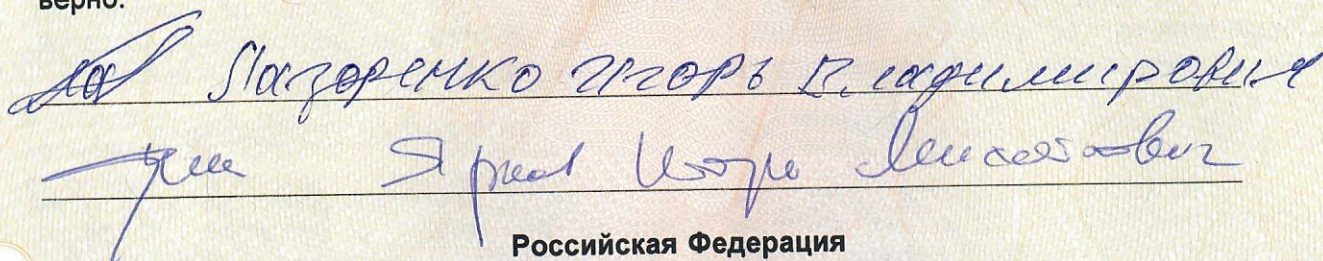 верно.
Лазоренко Игорь Владимирович
Ярков Игорь Михайлович
Российская Федерация